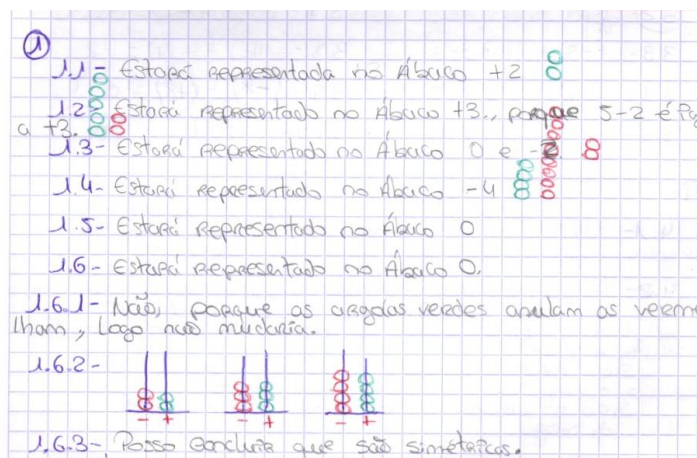 1
1.1- Estará representada no Ábaco +2
1.2- Estará representado no Ábaco +3., porque 5-2 é
a +3.
1.3- Estará representado no Ábaco 0 e -2.
1.4- Estará representado no Ábaco -4
1.5- Estará representado no Ábaco 0
1.6- Estará representado no Ábaco 0.
1.6.1- Não, porque as argolas verdes anulam as verme
lham, logo não mudaria.
1.6.2-
- + - + - +
1.6.3- Posso concluir que são simétricos.